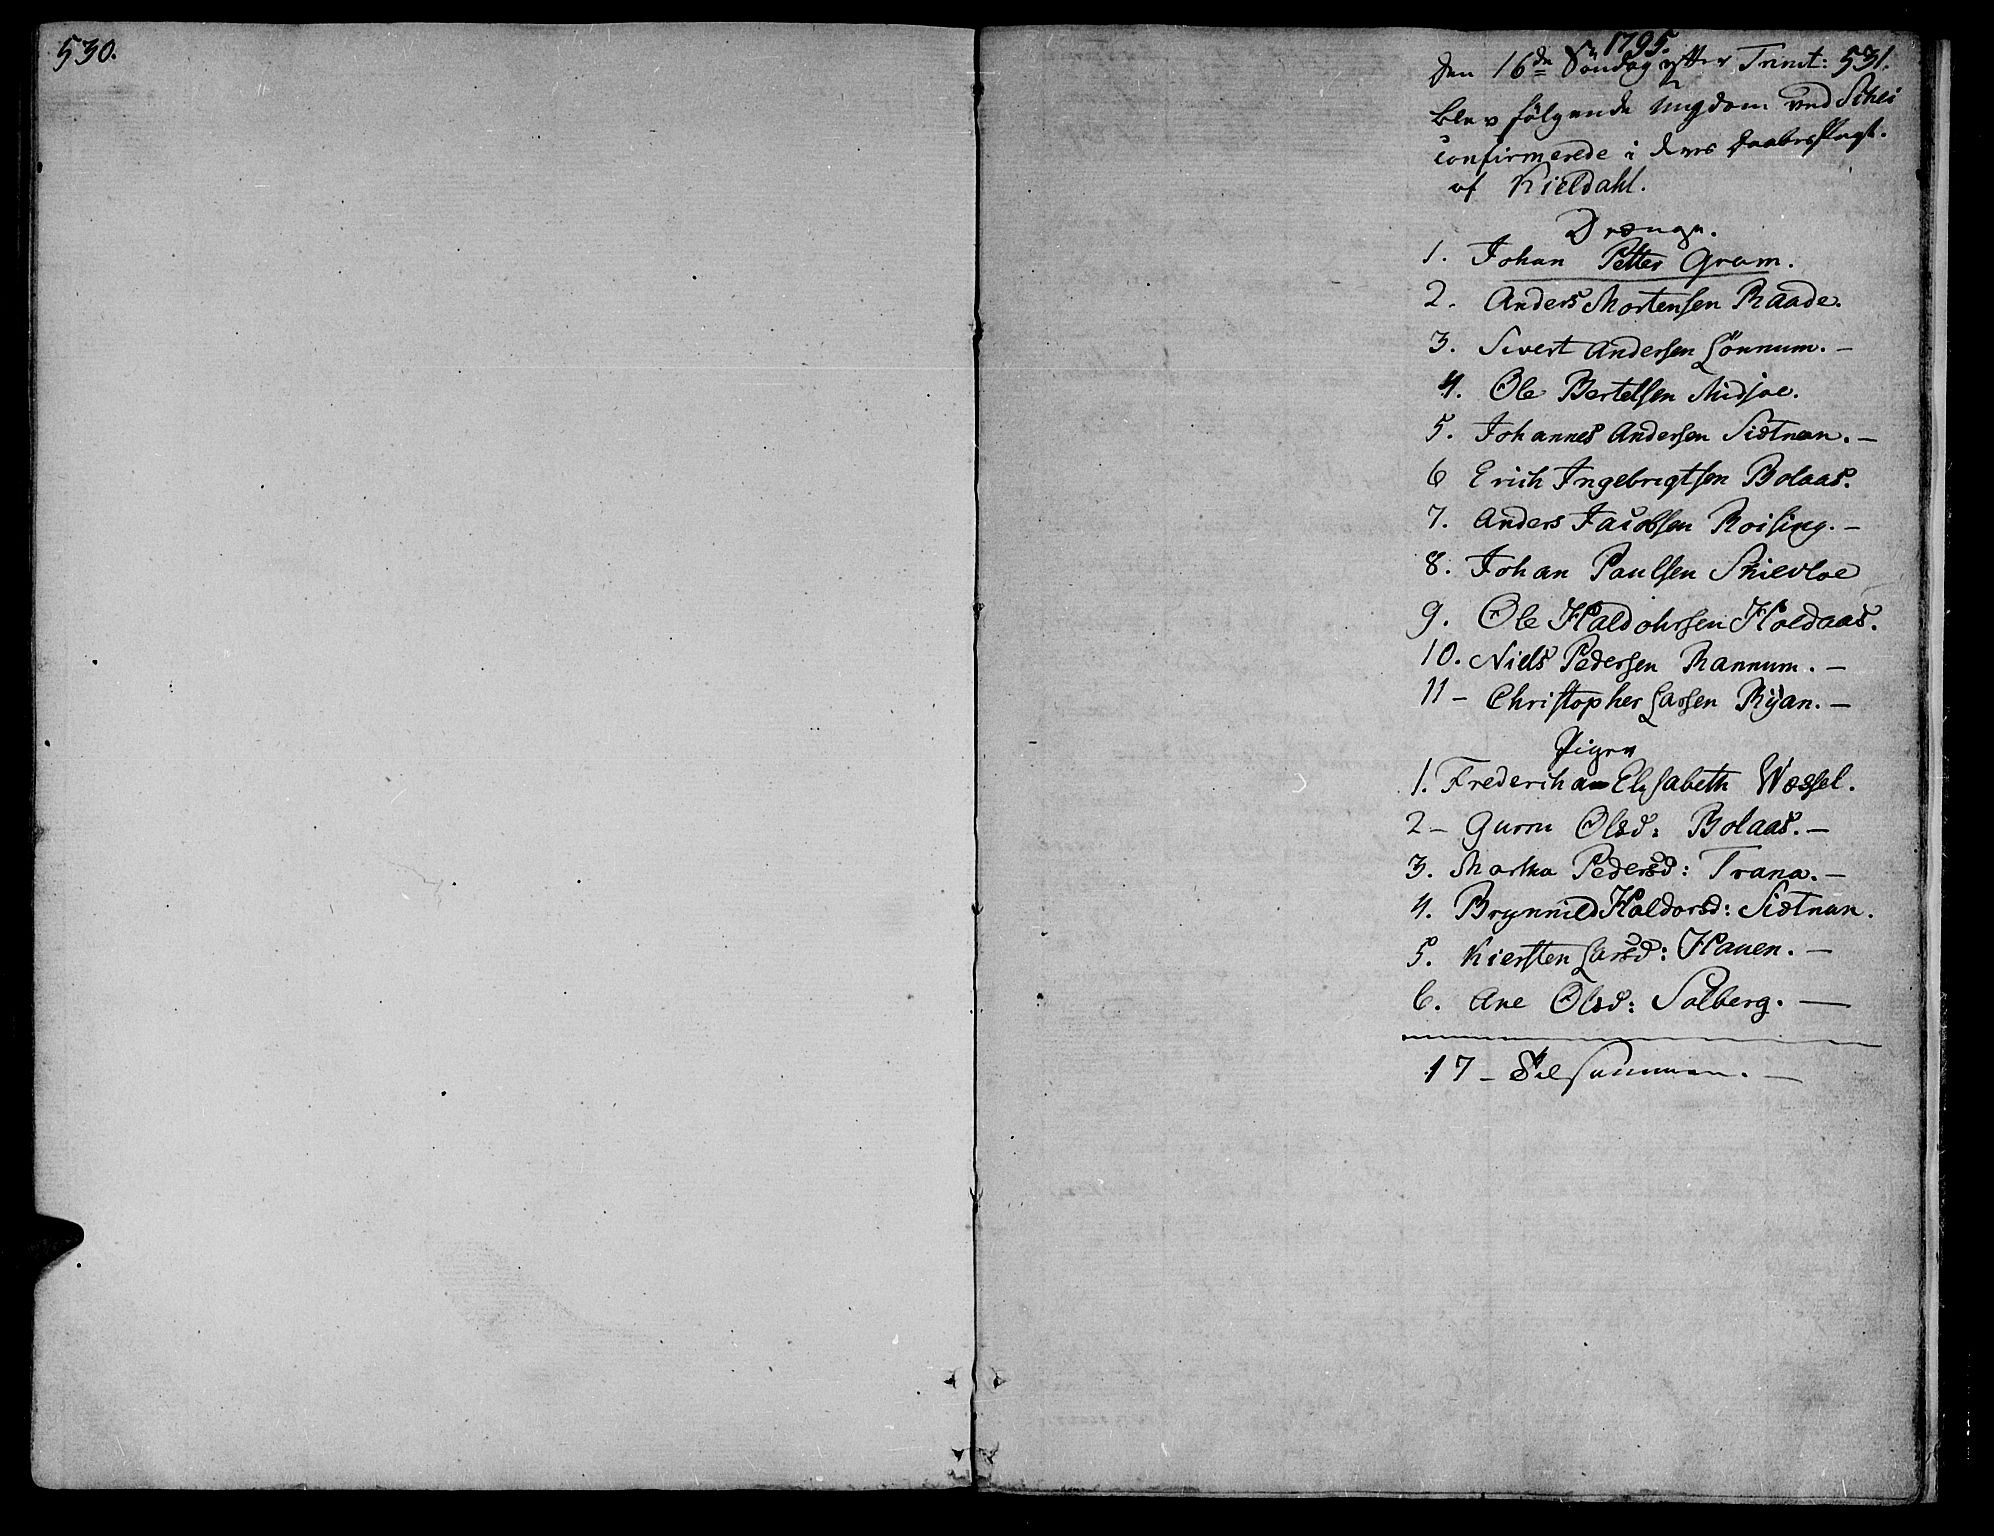 530.
1795.
den 16de Söndag efter Trinit: 531.
blev følgende Ungdom ved Schei
confirmerede i deres Daabes Pagt.
af Kieldahl.
Drænge.
1. Johan Petter Gram.
2. Anders Mortensen Raade.
3. Sivert Andersen Lønnum. -
4. Ole Bertelsen Midjoe.
5. Johannes Andersen Sietnan. -
6 Erich Ingebrigtsen Bolaas.
7. Anders Jacobsen Roising. -
8. Johan Paulsen Skievloe
9. Ole Haldohrsen Holdaas.
10. Niels Pedersen Rannum. -
11 - Christopher Larsen Ryan. -
Piger
1. Fredericha Elisabeth Wessel.
2 - Gurru Olsd: Bolaas. -
3. Martha Pedersd: Trana. -
4. Brynnild Haldorsd: Sietnan.
5. Kiersten Larsd: Hauen. -
6. Ane Olsd: Solberg. -
17 - Tilsammen. -